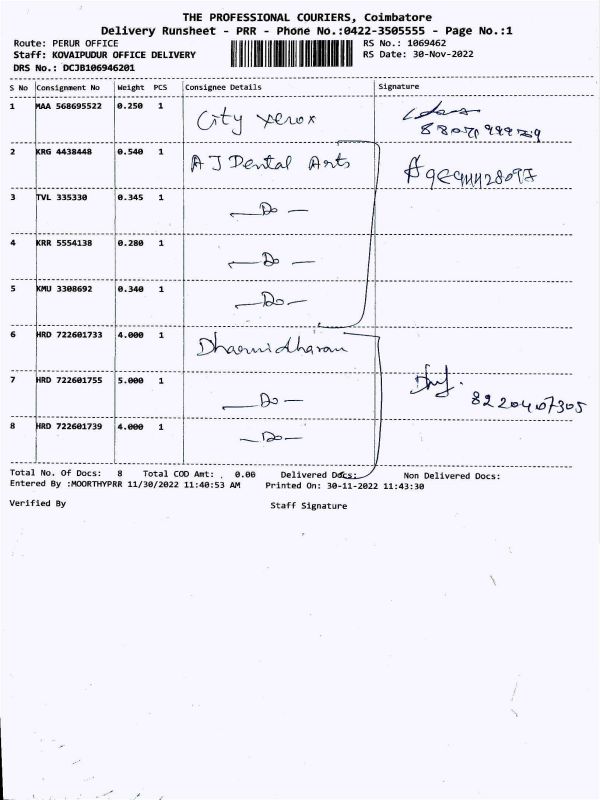 THE PROFESSIONAL COURIERS, Coimbatore
Delivery Runsheet - PRR - Phone No.:0422-3505555 - Page No.:1
Route: PERUR OFFICE RS No.: 1069462
Staff: KOVAIPUDUR OFFICE DELIVERY RS Date: 30-Nov-2022
DRS No.: DCJB106946201
S No Consignment No Weight PCS Consignee Details Signature
1 MAA 568695522 0.250 1 City Xerox
2 KRG 4438448 0.540 1 A J Dental Arts
3 TVL 335330 0.345 1 — Do —
4 KRR 5554138 0.280 1 — Do —
5 KMU 3308692 0.340 1 — Do —
6 HRD 722601733 4.000 1 Dharnidharan
7 HRD 722601755 5.000 1 — Do —
8220407305
8 HRD 722601739 4.000 1 — Do —
Total No. Of Docs: 8 Total COD Amt: 0.00 Delivered Docs: Non Delivered Docs:
Entered By :MOORTHYPRR 11/30/2022 11:40:53 AM Printed On: 30-11-2022 11:43:30
Verified By Staff Signature